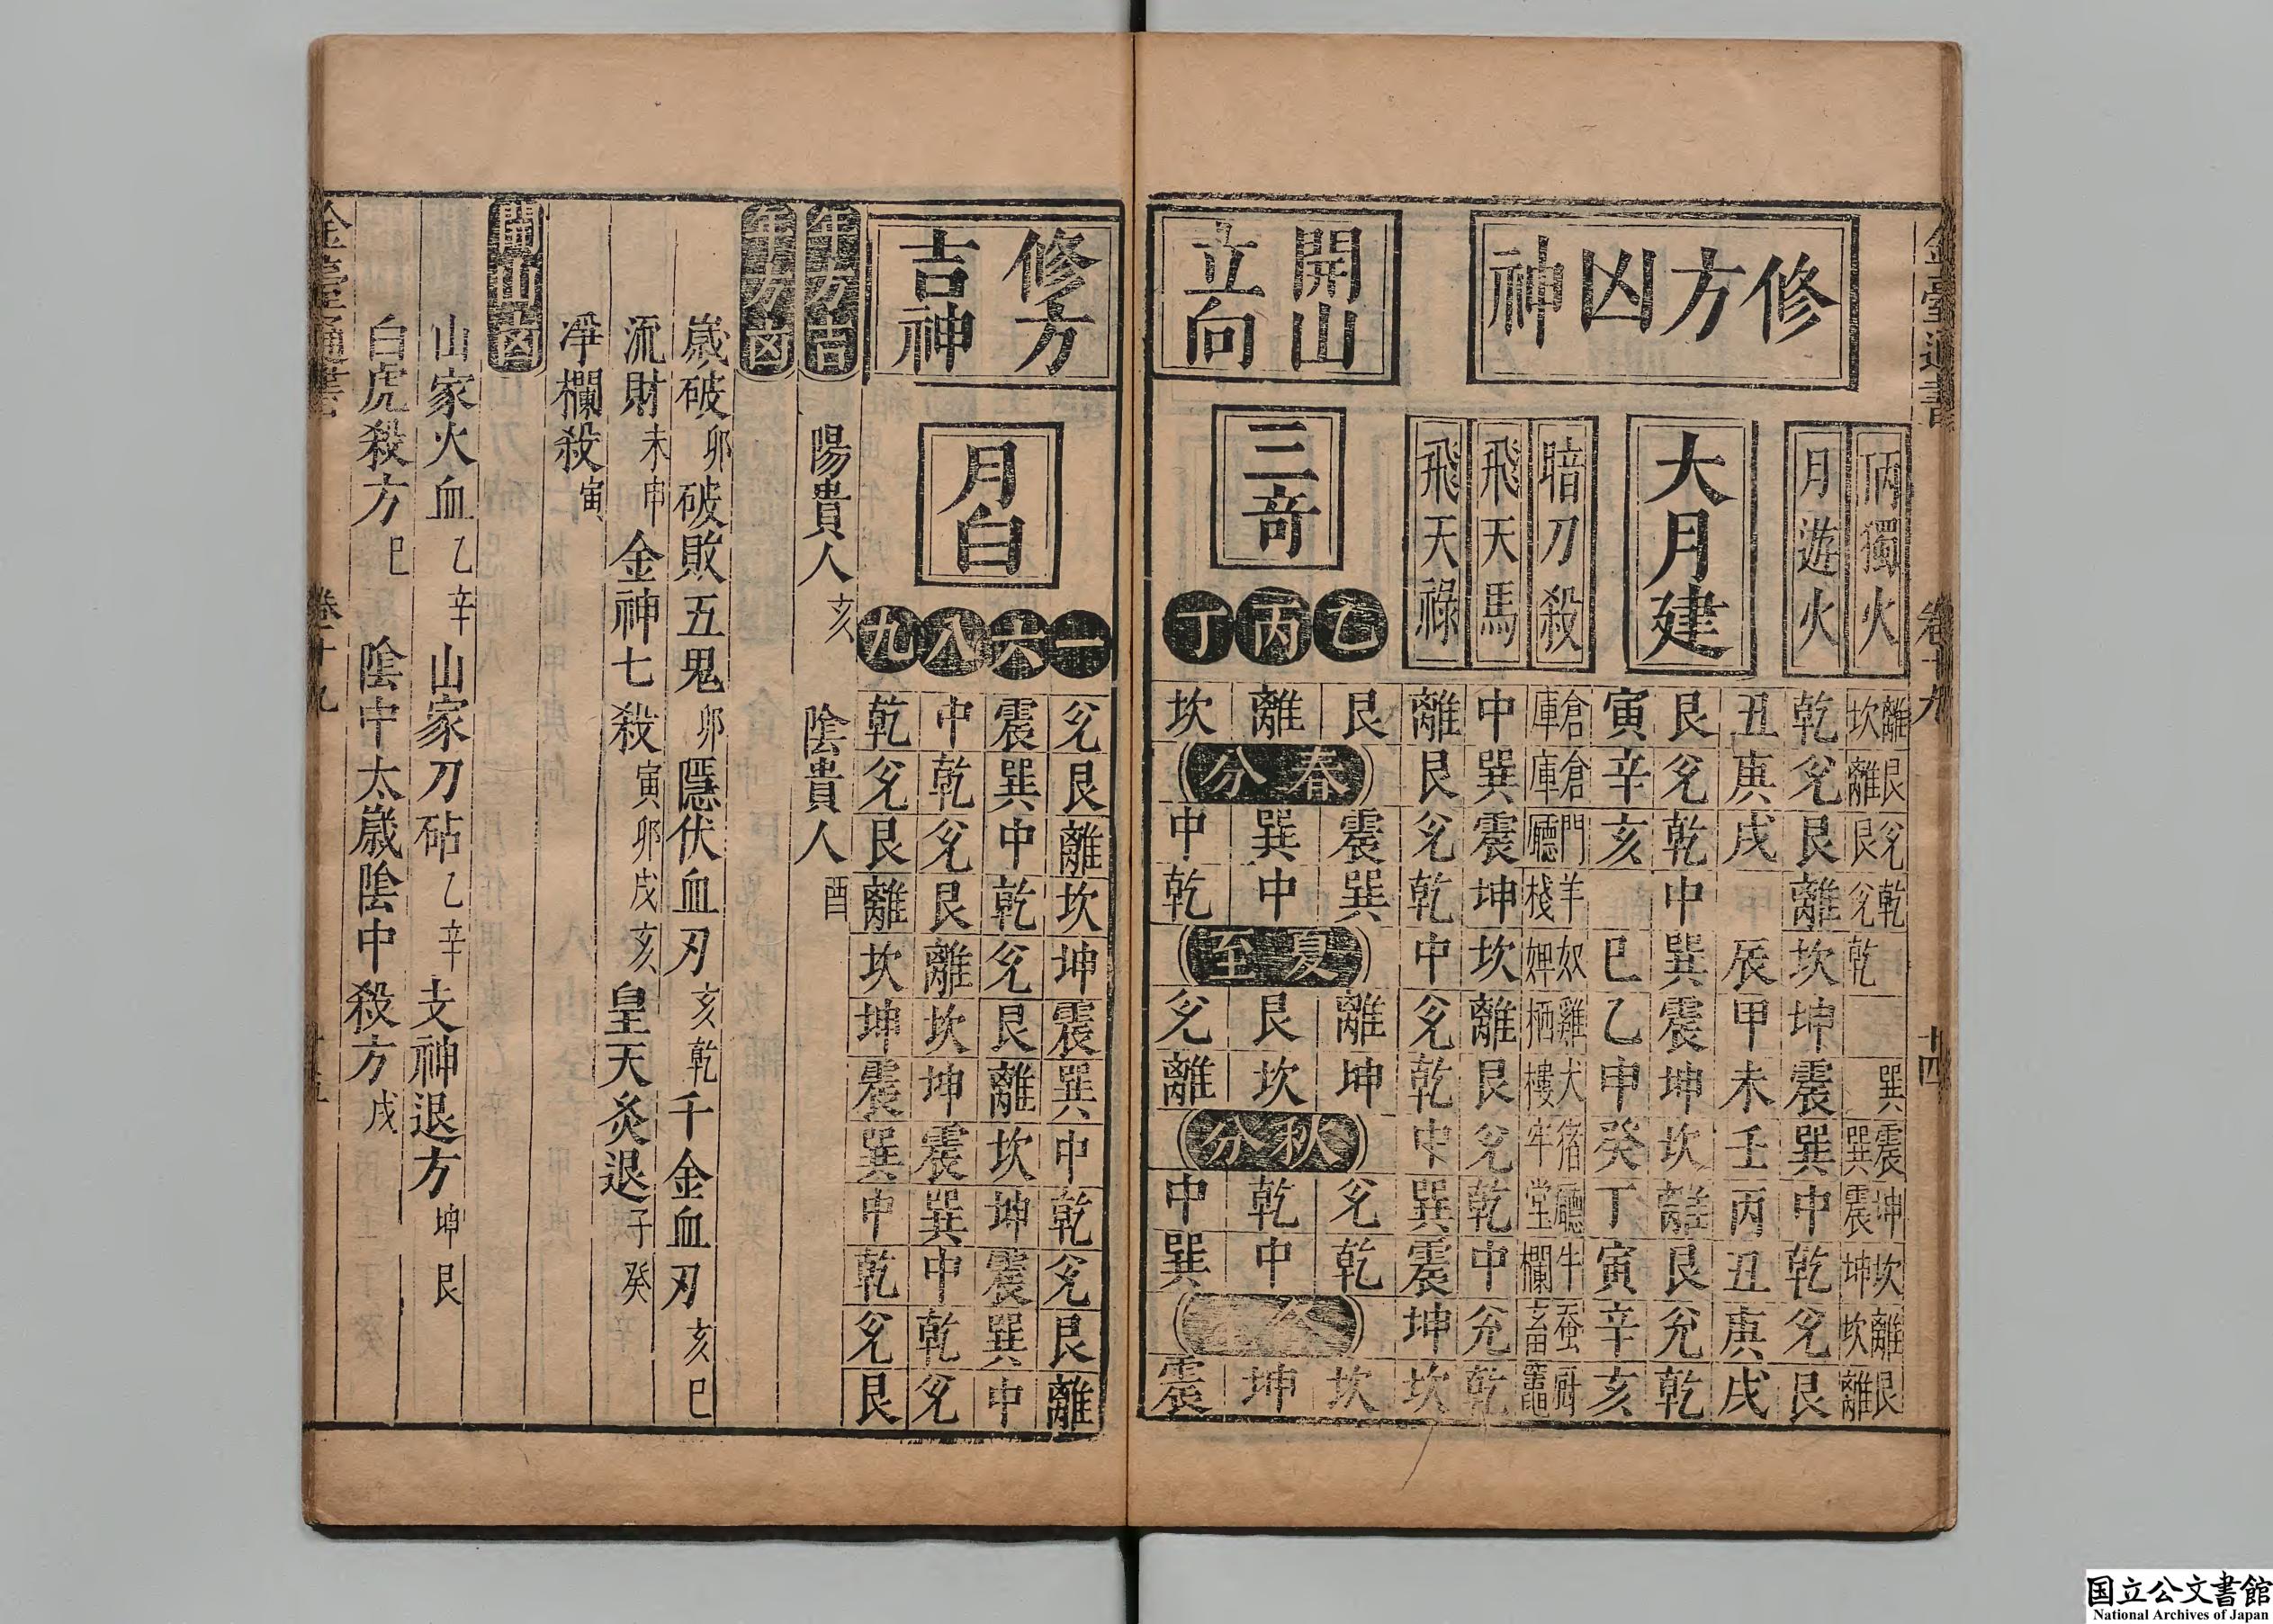 金臺通書 卷十九 廿四
修方凶神
丙獨火 離坎 艮離 兌艮 乾兌 乾 巽 震巽 坤震 坎坤 離坎 艮離
月遊火 乾兌艮離坎坤震巽中乾兌艮
大月建
丑庚戌辰甲未壬丙丑庚戌
艮兌乾中巽震坤坎離艮兌乾
寅辛亥巳乙申癸丁寅辛亥
暗刀殺 倉庫 倉庫 門廳 羊棧 奴婢 雞栖 犬樓 猪牢 廳堂 牛欄 蚕畜 厨竈
飛天馬 中巽震坤坎離艮兌乾中兌乾
飛天祿 離艮兌乾中兌乾中巽震坤坎
開山立向
三奇
乙丙丁
艮離坎
春分
震巽中
巽中乾
夏至
離艮兌
坤坎離
秋分
兌乾中
乾中巽
冬至
坎坤震
修方吉神
月白
一 兌艮離坎坤震巽中乾兌艮離
六 震巽中乾兌艮離坎坤震巽中
八 中乾兌艮離坎坤震巽中乾兌
九 乾兌艮離坎坤震巽中乾兌艮
年方吉 陽貴人亥 陰貴人酉
年方凶
歲破卯 破敗五鬼卯 隱伏血刃亥乾 千金血刃亥巳
流財未申 金神七殺寅卯戌亥 皇天灸退子癸
淨欄殺寅
開山凶
山家火血乙辛 山家刀砧乙辛 支神退方坤艮
白虎殺方巳 陰中太歲陰中殺方戌
金臺通書 卷十九
国立公文書館
National Archives of Japan